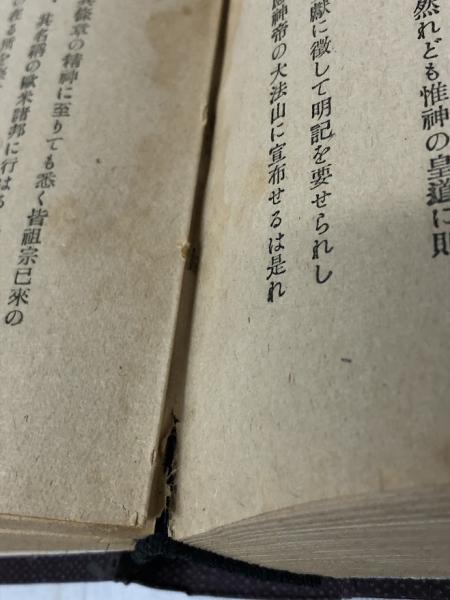 然れども惟神の皇道に則
獻に徴して明記を要せられし
神帝の大法山に宣布せるは是れ
條章の精神に至りても悉く皆祖宗已來の
、其名稱の歐米諸邦に行はる
在る所を